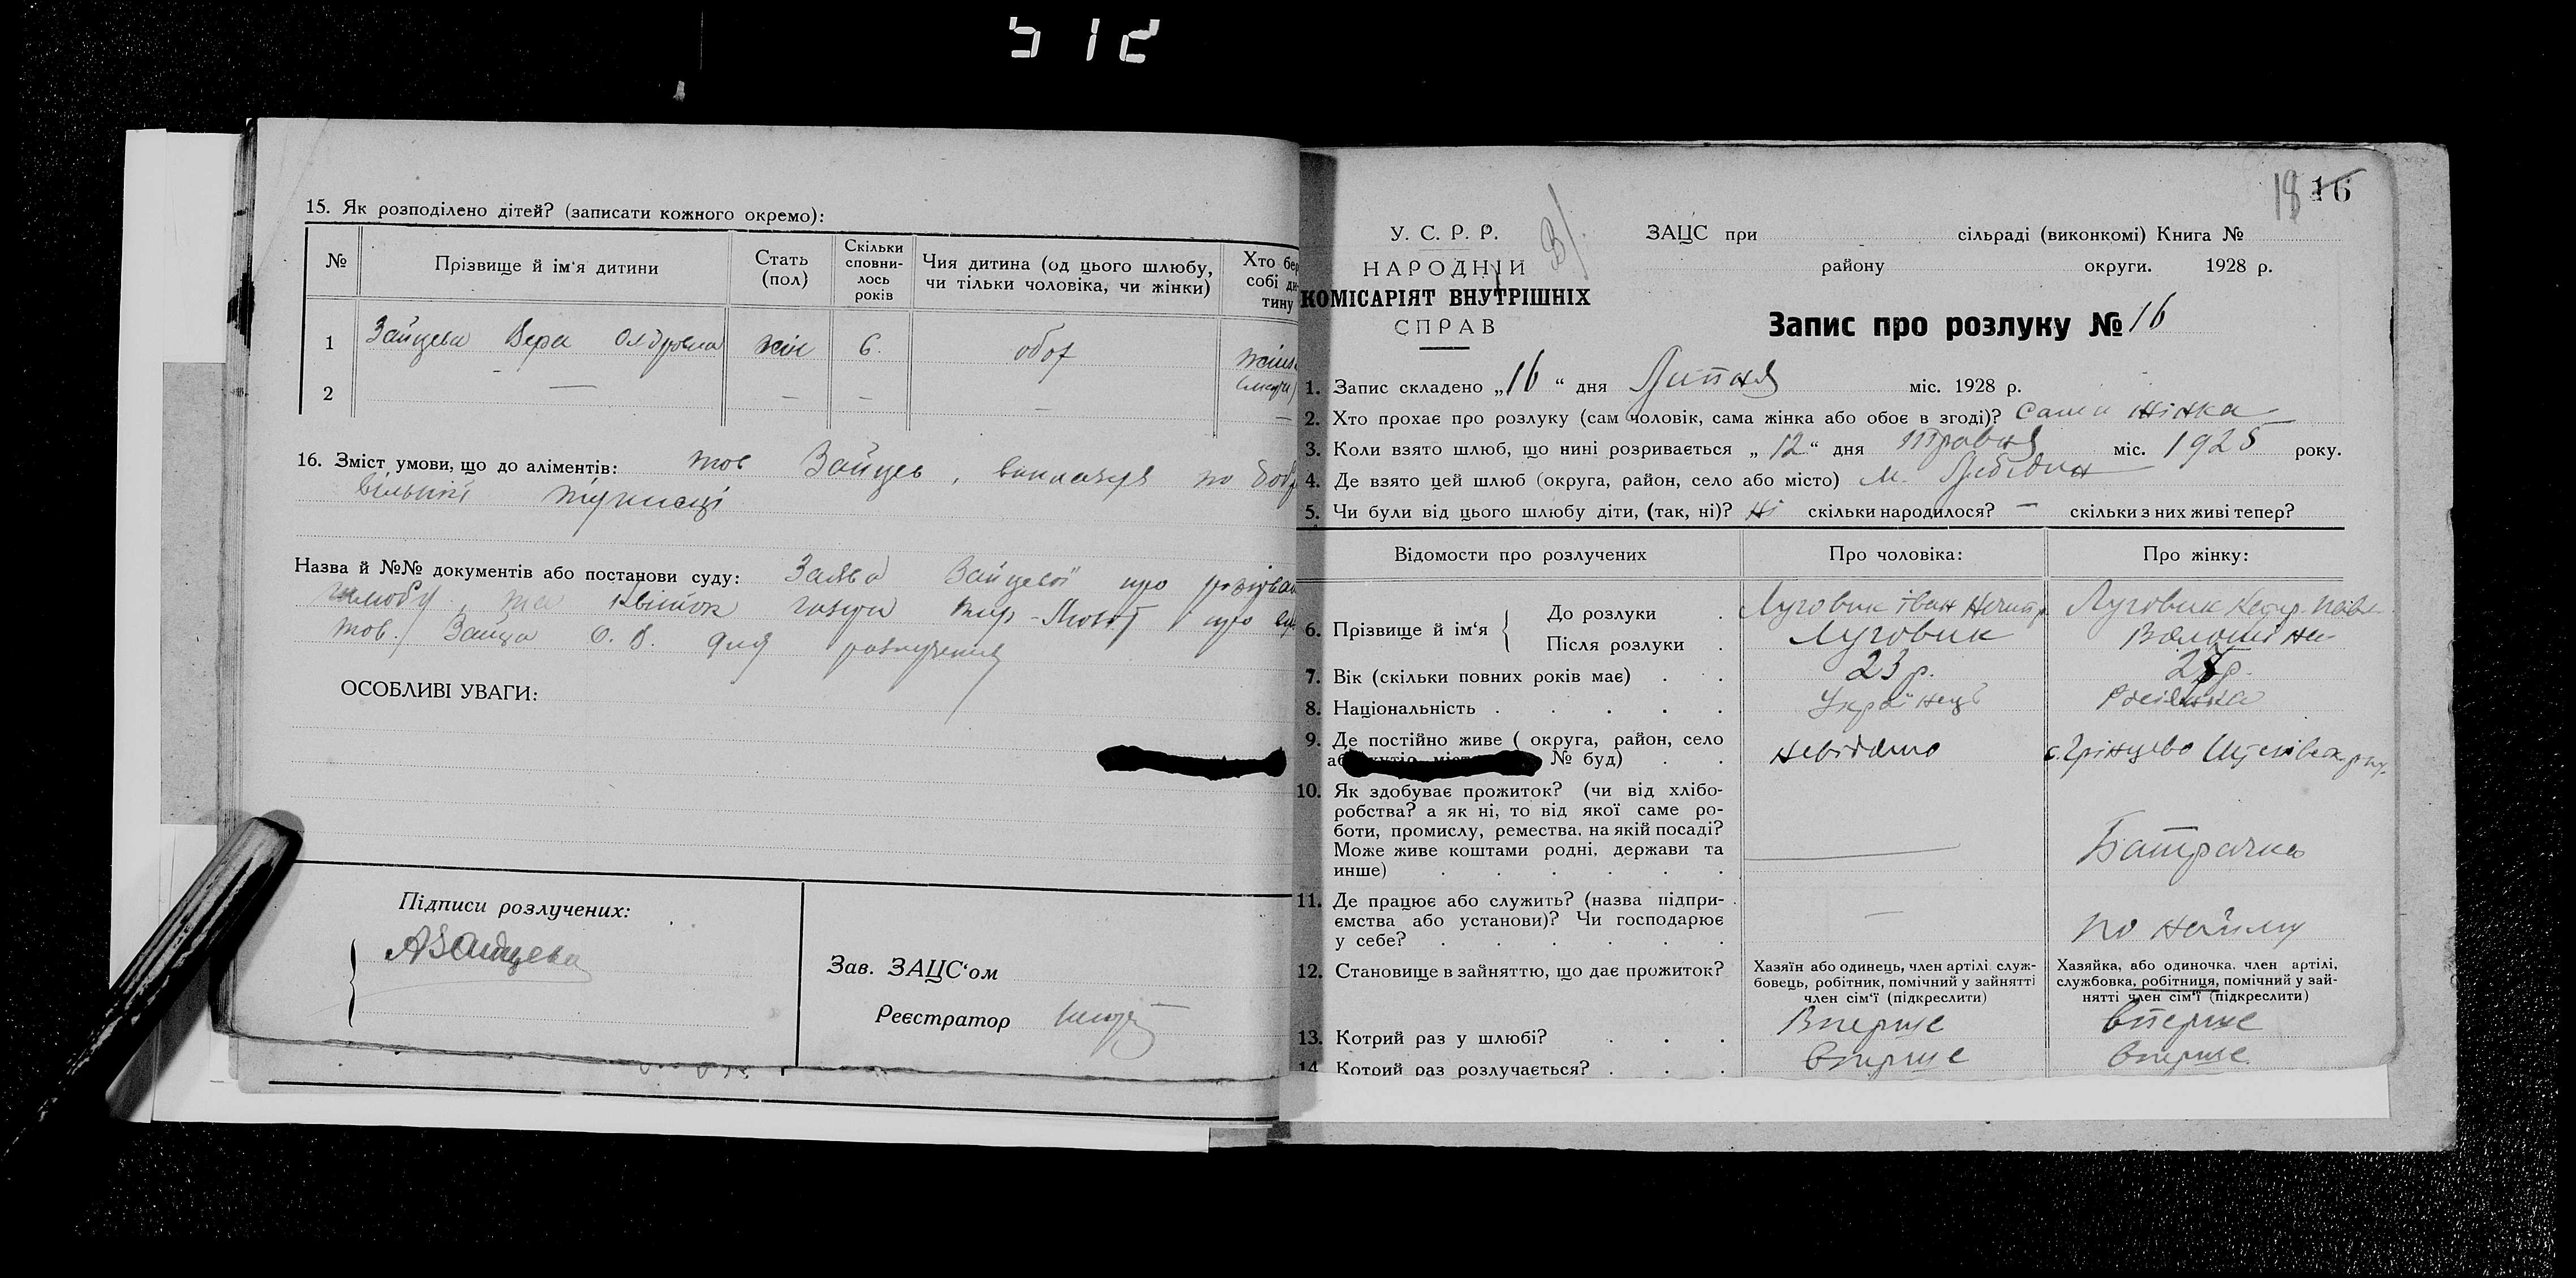 512
15. Як розподілено дітей? (записати кожного окремо):
№ Прізвище й ім'я дитини Стать (пол) Скільки сповни- лось років Чия дитина (од цього шлюбу, чи тільки чоловіка, чи жінки) Хто бер собі ди- тину
1 Зайцева Вера жін 6. обох
2 — — — — —
16. Зміст умови, що до аліментів: тов Зайцев, по
Назва й №№ документів або постанови суду: Заява Зайцевої про
шлюбу та
тов. Зайца О. В. для розлучення
ОСОБЛИВІ УВАГИ:
Підписи розлучених:
АЗайцева
Зав. ЗАЦС'ом
Реєстратор
18 16
У. С. Р. Р.
НАРОДНІЙ
КОМІСАРІЯТ ВНУТРІШНІХ
СПРАВ
ЗАЦС при сільраді (виконкомі) Книга №
району округи. 1928 р.
Запис про розлуку № 16
1. Запис складено „16“ дня Липня міс. 1928 р.
2. Хто прохає про розлуку (сам чоловік, сама жінка або обоє в згоді)? Сама жінка
3. Коли взято шлюб, що нині розривається „12“ дня Травня міс. 1925 року.
4. Де взято цей шлюб (округа, район, село або місто) м. Лебедин
5. Чи були від цього шлюбу діти, (так, ні)? Ні скільки народилося? — скільки з них живі тепер?
Відомости про розлучених Про чоловіка: Про жінку:
6. Прізвище й ім'я { До розлуки . Луговик Іван Луговик
Після розлуки . Луговик
7. Вік (скільки повних років має) . . 23 р.
8. Національність . . . . . Українець Росіянка
9. Де постійно живе (округа, район, село
№ буд) . . невідомо с. Грінцево
10. Як здобуває прожиток? (чи від хлібо-
робства? а як ні, то від якої саме ро-
боти, промислу, ремества, на якій посаді?
Може живе коштами родні, держави та
инше) . . . . . . — Батрачка
11. Де працює або служить? (назва підпри-
ємства або установи)? Чи господарює
у себе? . . . . . . — по найму
12. Становище в зайняттю, що дає прожиток? Хазяїн або одинець, член артілі, служ- бовець, робітник, помічний у зайнятті член сім'ї (підкреслити) Хазяйка, або одиночка, член артілі, службовка, робітниця, помічний у зай- нятті член сім'ї (підкреслити)
13. Котрий раз у шлюбі? . . . Вперше вперше
14. Котрий раз розлучається? . . . вперше вперше